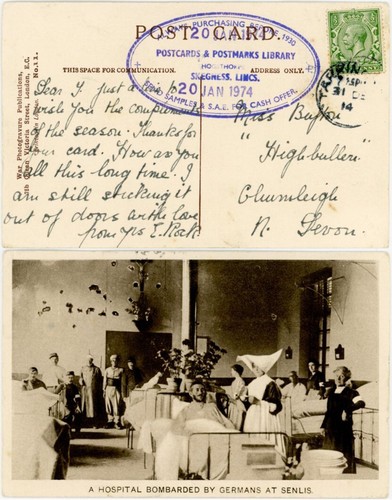 POST CARD.
THIS SPACE FOR COMMUNICATION.
ADDRESS ONLY.
POSTCARDS & POSTMARKS LIBRARY
HOGSTHORPE
SKEGNESS, LINCS.
20 JAN 1974
SAMPLES & S.A.E. FOR CASH OFFER.
31 DE
14
War Photogravure Publications,
Victoria Street, London, E.C.
No. 11.
Dear I. just a line to
wish you the compliments
of the season. Thanks for
your card. How are you
all this long time. I
am still sticking it
out of doors with love
from yrs
Miss
"Highbullen"
Chumleigh
N. Devon.
A HOSPITAL BOMBARDED BY GERMANS AT SENLIS.